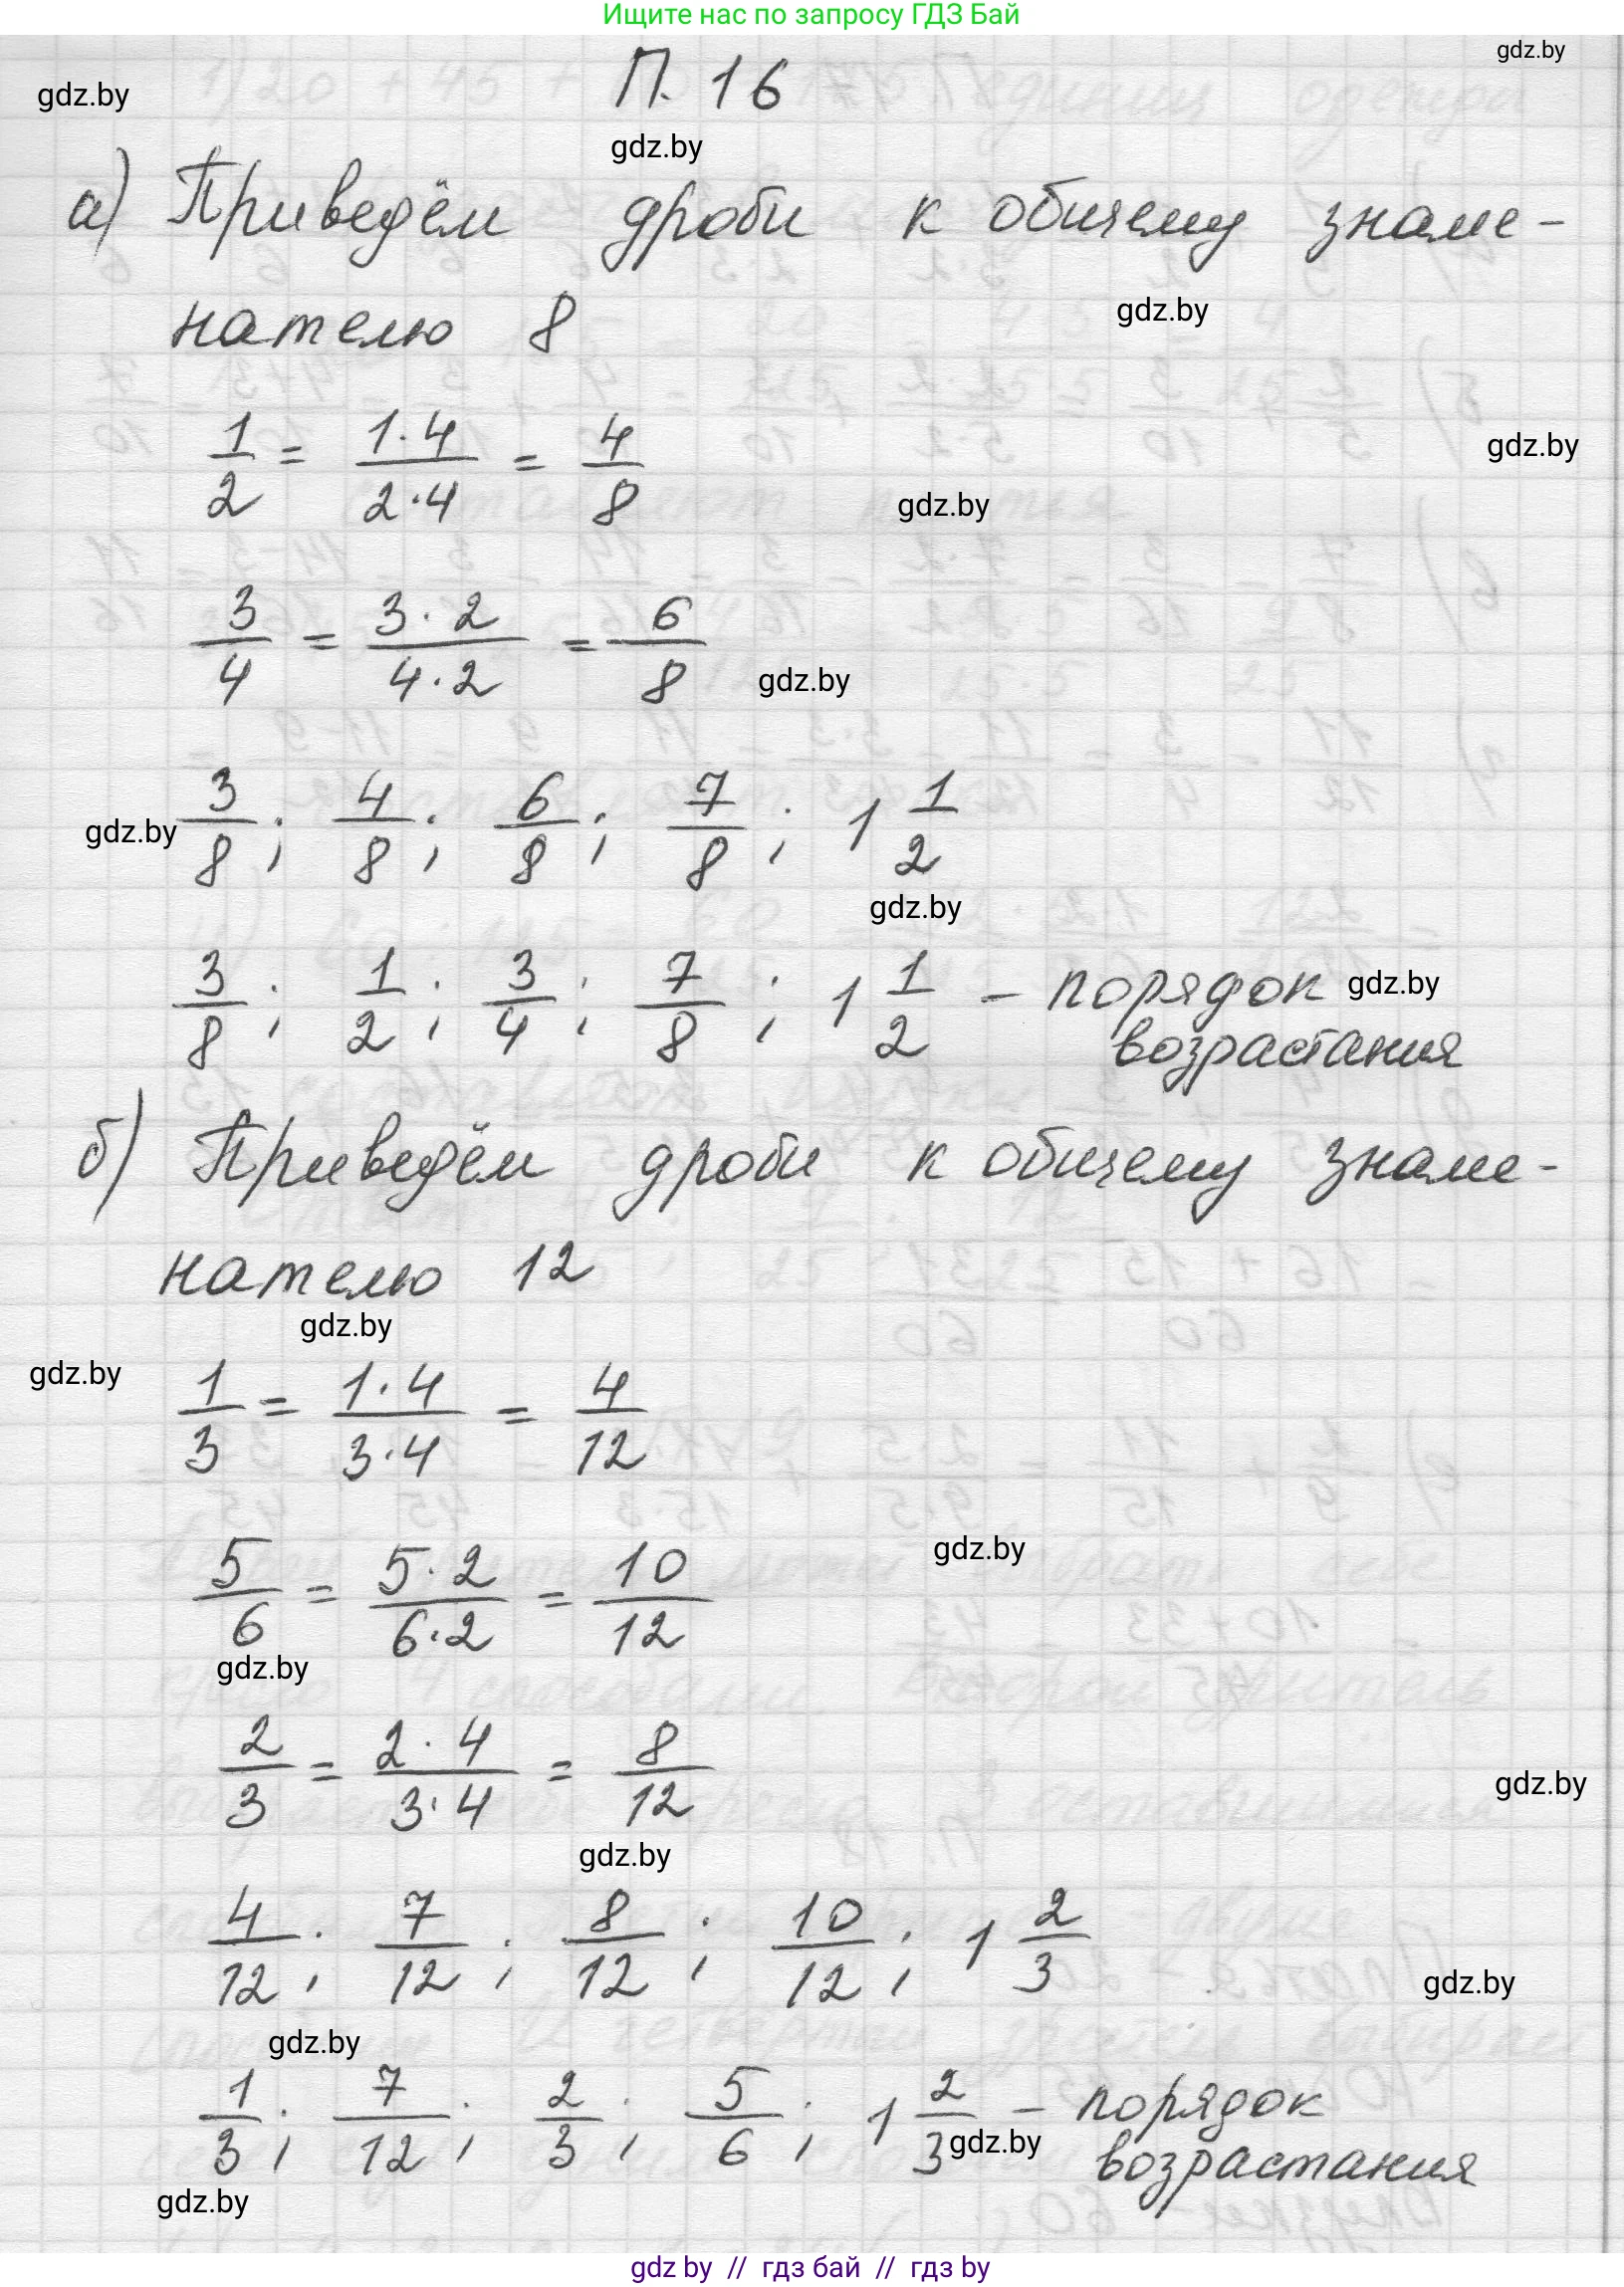 Ищите нас по запросу ГДЗ Бай
gdz.by
П. 16
gdz.by
gdz.by
а) Приведём дроби к общему знаме-
gdz.by
нателю 8
1/2 = 1·4/2·4 = 4/8
gdz.by
gdz.by
3/4 = 3·2/4·2 = 6/8
gdz.by
3/8; 4/8; 6/8; 7/8; 1 1/2
gdz.by
gdz.by
3/8; 1/2; 3/4; 7/8; 1 1/2 – порядок
gdz.by
возрастания
б) Приведём дроби к общему знаме-
нателю 12
gdz.by
gdz.by
1/3 = 1·4/3·4 = 4/12
gdz.by
5/6 = 5·2/6·2 = 10/12
gdz.by
2/3 = 2·4/3·4 = 8/12
gdz.by
gdz.by
4/12; 7/12; 8/12; 10/12; 1 2/3
gdz.by
gdz.by
1/3; 7/12; 2/3; 5/6; 1 2/3 – порядок
gdz.by
возрастания
gdz.by
gdz by // гдз бай // гдз by